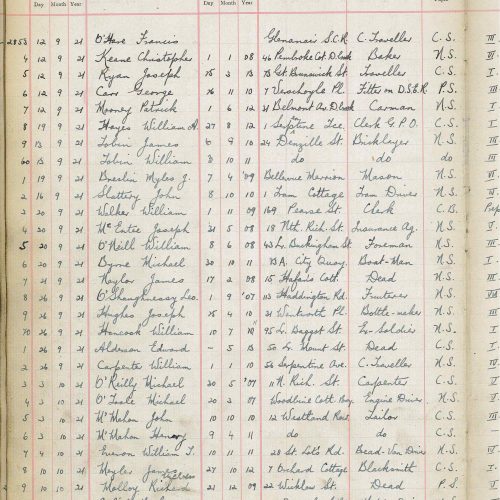 Day Month Year Day Month Year
2853 12 9 21 O'Hare Francis Glenanair S.C.R. C. Traveller C.S. III
4 12 9 21 Keane Christopher 1 1 08 46 Pembroke Cot. D.brook Baker N.S. V
5 12 9 21 Ryan Joseph 15 3 13 Gt. Brunswick St. Traveller C.S. I
6 12 9 21 Carr George 16 11 10 7 Verschoyle Pl. Fitter on D.S.E.R. P.S.
7 12 9 21 Mooney Patrick 1 6 12 31 Belmont Av. D.brook Carman N.S. I
8 19 9 21 Hayes William A. 27 8 12 1 Serptine Tce. Clerk G.P.O. C.S. I
9 13 9 21 Tobin James 6 9 10 24 Denzille St. Bricklayer N.S.
60 13 9 21 Tobin William 8 10 11 do do do III
1 15 9 21 Breslin Myles J. 7 4 '09 Bellavue Merrion Mason N.S.
2 16 9 21 Slattery John 8 10 10 1 Tram Cottage Tram Driver N.S.
3 20 9 21 Walker William 1 11 09 169 Pearse St. Clerk C.B.
4 20 9 21 McEntee Joseph 21 5 08 18 Nth. Rich. St. Insurance Ag. N.S.
5 20 9 21 O'Neill William 8 6 08 43 Lr. Buckingham St. Foreman N.S.
6 20 9 21 Byrne Michael 30 10 11 13A. City Quay. Boat-Man N.S.
7 21 9 21 Naylor James 17 2 08 15 Cott. Dead N.S.
8 26 9 21 O'Shaughnessy Leo. 1 9 '07 113 Haddington Rd. Fruiterer N.S.
9 26 9 21 Hughes Joseph 15 4 10 21 Wentworth Pl. Bottle-maker N.S.
70 26 9 21 Hancock William 10 7 11 95 Lr. Baggot St. Ex-Soldier N.S. I
1 26 9 21 Alderson Edward – 5 13 50 Lr. Mount St. Dead C.S. I
2 26 9 21 Carpenter William 1 1 10 56 Serpentine Ave. C. Traveller N.S.
3 3 10 21 O'Reilly Michael 30 5 '07 11 N. Rich. St. Carpenter C.S.
4 3 10 21 O'Toole Michael 20 3 07 Woodbine Cott. Engine Driver N.S.
5 3 10 21 McMahon John 10 10 10 12 Westland Row Tailor C.S.
6 3 10 21 McMahon Henry 9 4 11 do do C.S.
7 4 10 21 William T. 1 11 10 20 St. Rd. Bread-Van Driver N.S.
8 10 10 21 Moyler James 27 10 12 7 Orchard Cottage Blacksmith C.S. I
9 10 10 21 Molloy Richard 21 12 09 22 Wicklow St. Dead P.S. I